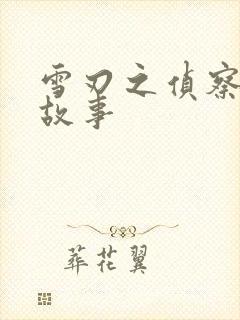 雪刃之偵察
故事
葬花翼